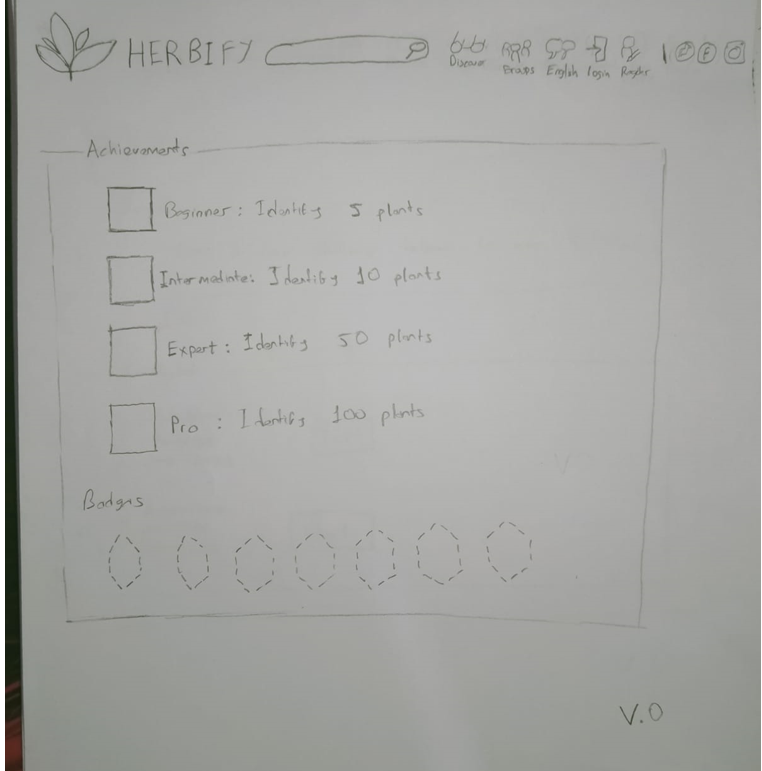 HERBIFY
Discover Groups English login Register
Achievements
Beginner: Identify 5 plants
Intermediate: Identify 10 plants
Expert: Identify 50 plants
Pro: Identify 100 plants
Badges
V.0